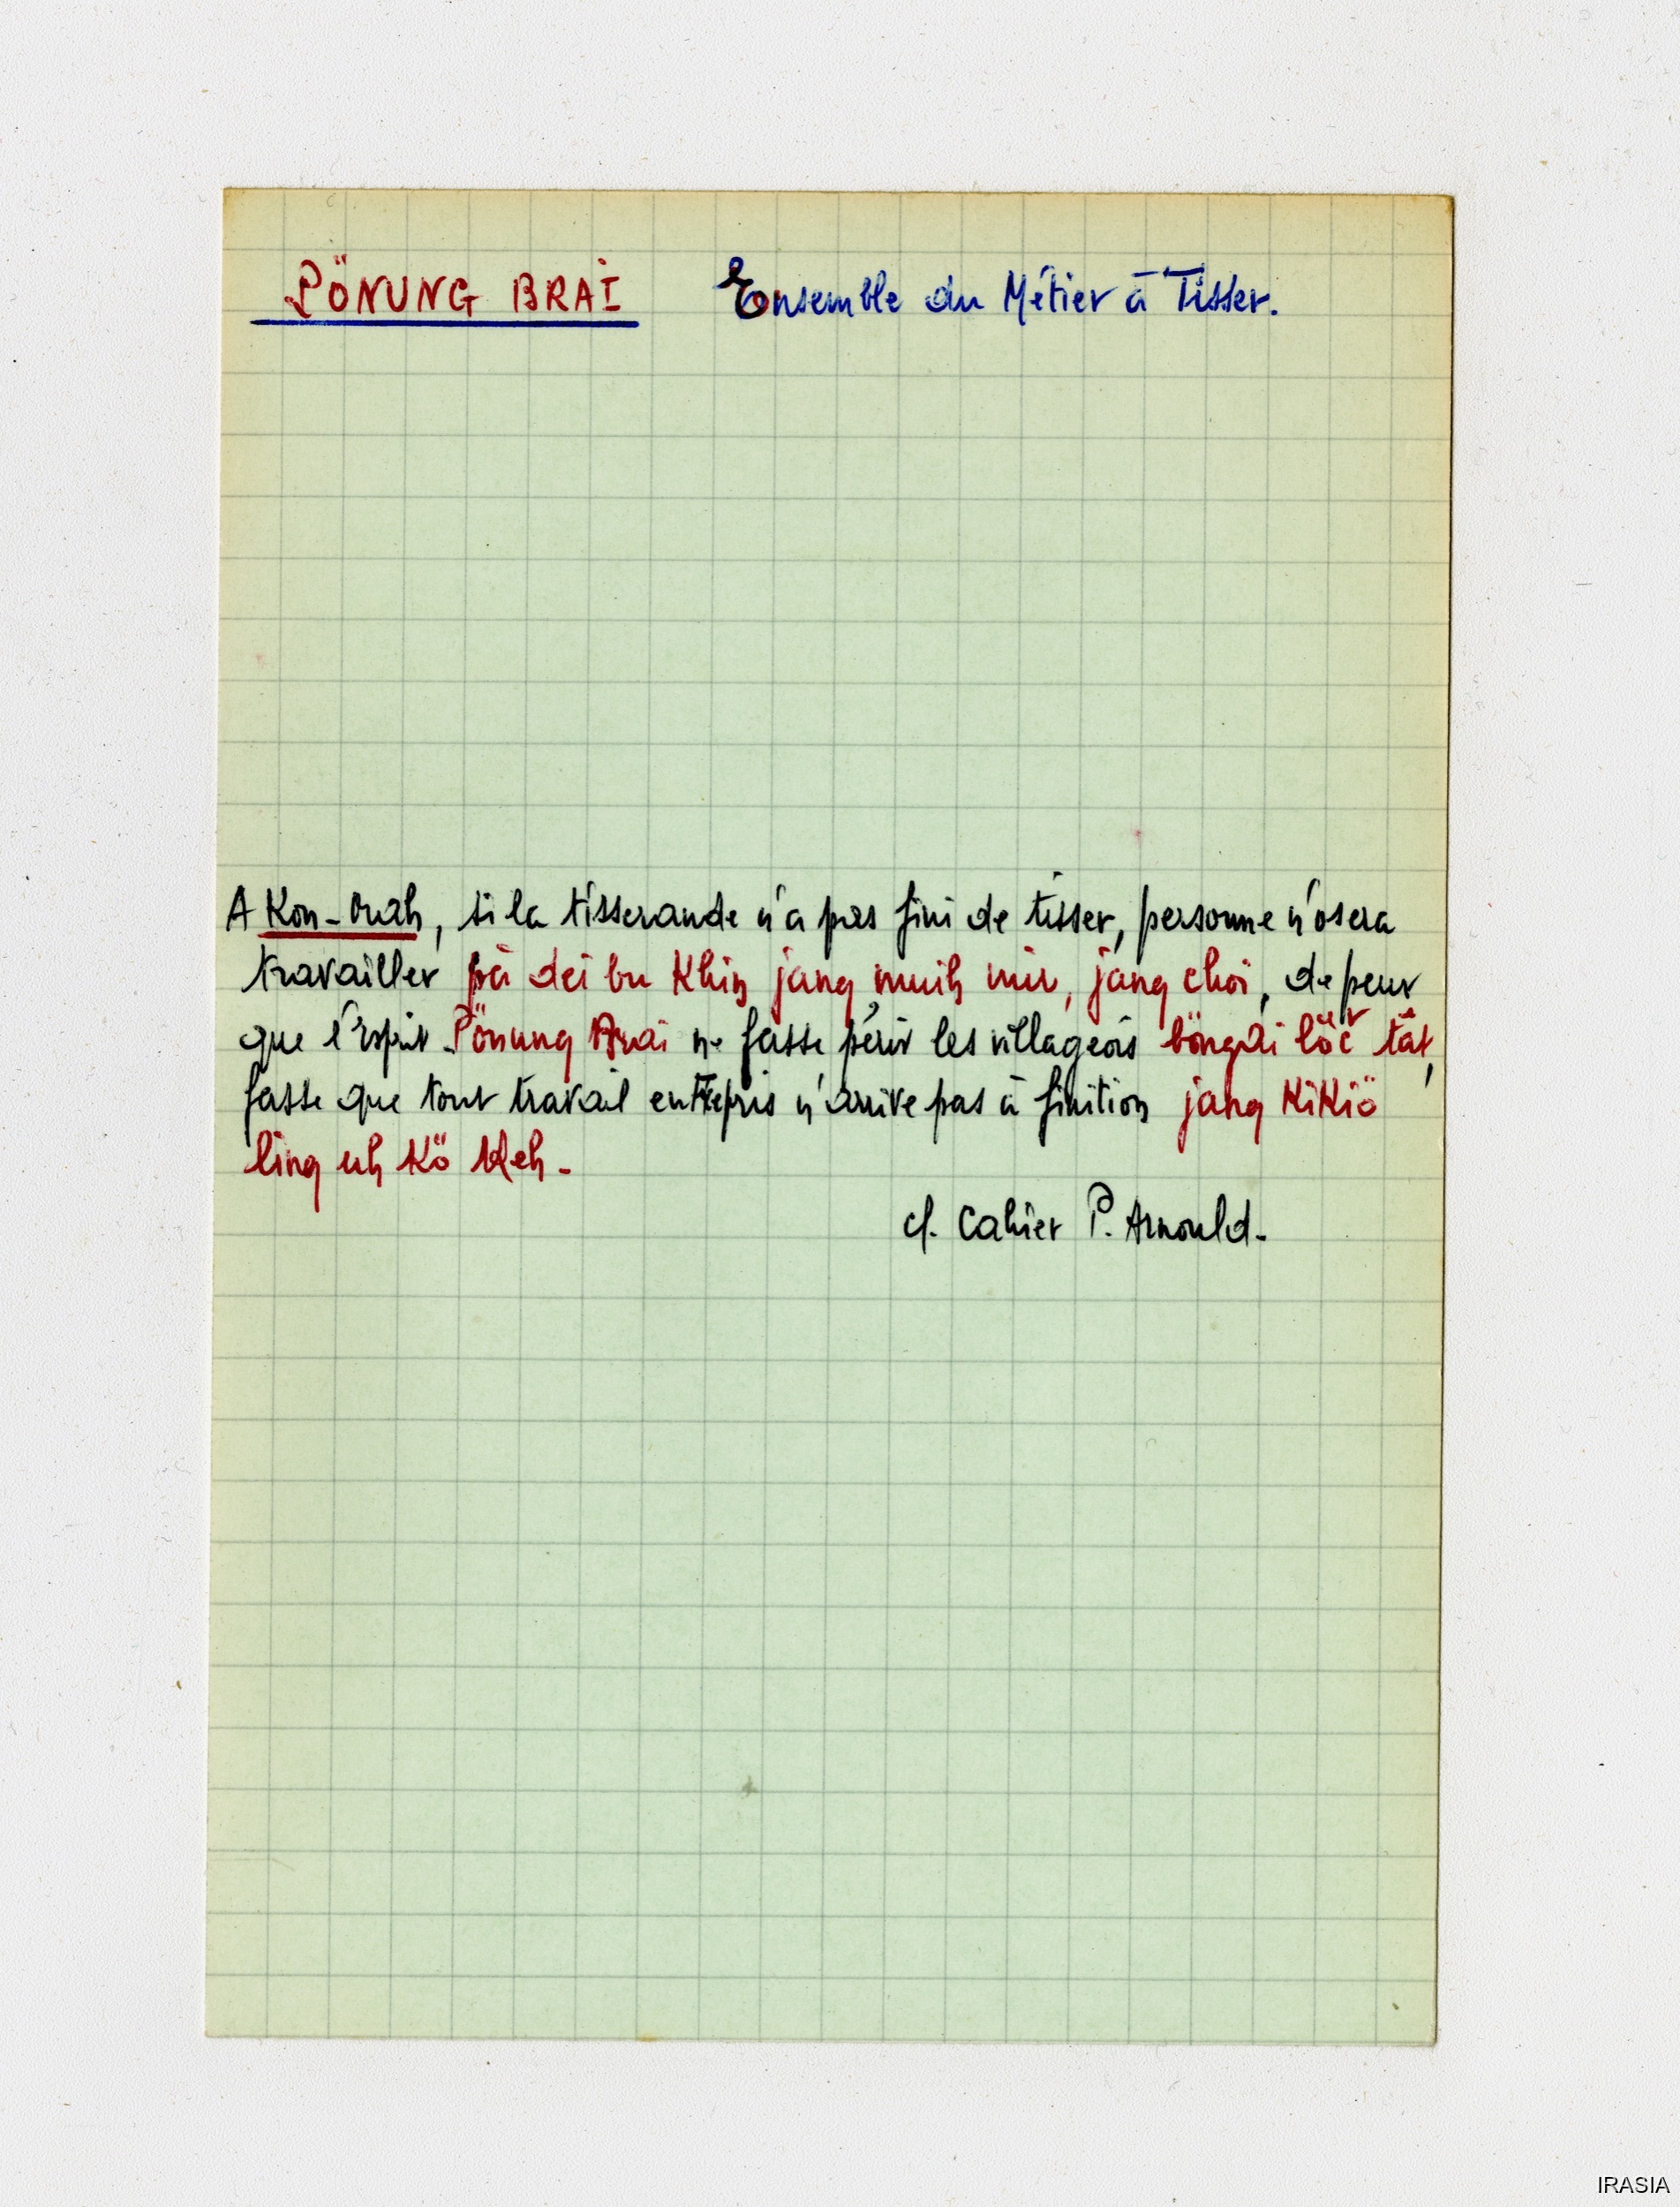 PÖNUNG BRAI Ensemble du Métier à Tisser.
A Kon-Ouăh, si la tisserande n'a pas fini de tisser, personne n'osera
travailler pă dei bu Khin jang muih mir, jang choi, de peur
que l'Esprit Pönung Brai ne fasse périr les villageois böngai löč tât,
fasse que tout travail entrepris n'arrive pas à finition jang KiKiö
ling uh Kö Keh.
cf. Cahier P. Arnould.
IRASIA